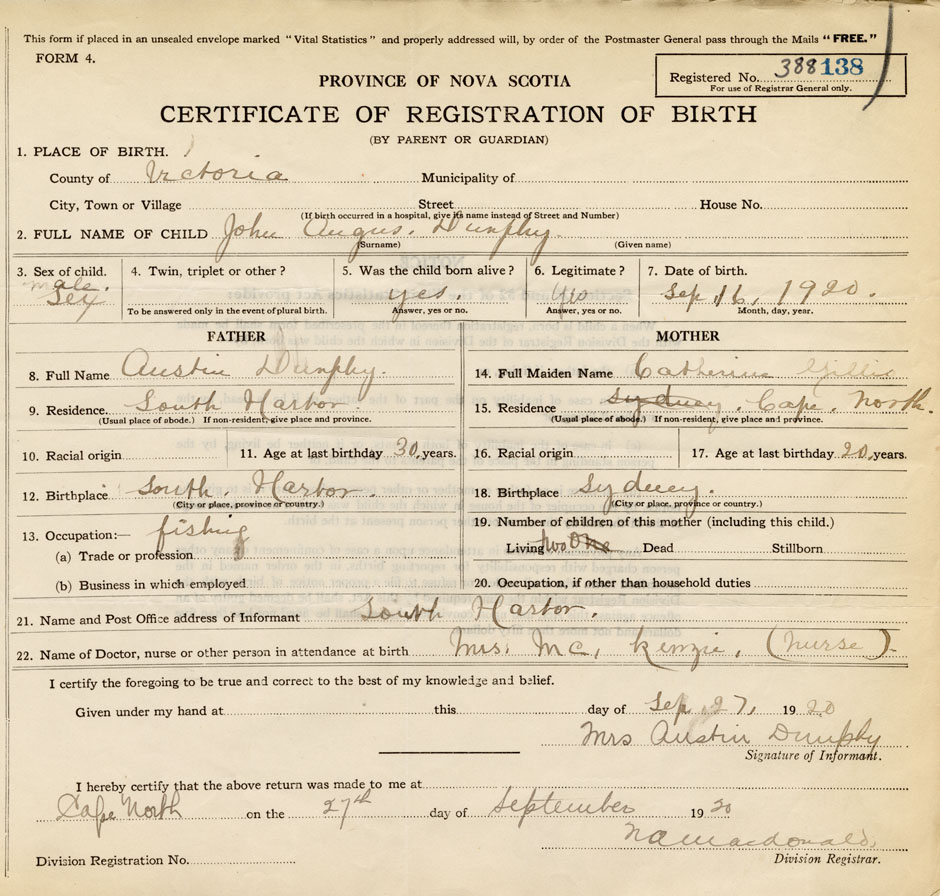 This form if placed in an unsealed envelope marked "Vital Statistics" and properly addressed will, by order of the Postmaster General pass through the Mails "FREE."
FORM 4.
Registered No. 388138
For use of Registrar General only.
PROVINCE OF NOVA SCOTIA
CERTIFICATE OF REGISTRATION OF BIRTH
(BY PARENT OR GUARDIAN)
1. PLACE OF BIRTH.
County of Victoria Municipality of
City, Town or Village Street House No.
(If birth occurred in a hospital, give its name instead of Street and Number)
2. FULL NAME OF CHILD John Angus. Dunphy.
(Surname) (Given name)
3. Sex of child. 4. Twin, triplet or other? 5. Was the child born alive? 6. Legitimate? 7. Date of birth.
male.
Sex yes. yes Sep. 16, 1920.
To be answered only in the event of plural birth. Answer, yes or no. Answer, yes or no. Month, day, year.
FATHER MOTHER
8. Full Name Austin Dunphy. 14. Full Maiden Name Catherine Gillis
9. Residence. South Harbor. 15. Residence Sydney, Cape North.
(Usual place of abode.) If non-resident, give place and province. (Usual place of abode.) If non-resident, give place and province.
10. Racial origin 11. Age at last birthday 30, years. 16. Racial origin 17. Age at last birthday 20, years.
12. Birthplace South Harbor. 18. Birthplace Sydney.
(City or place, province or country.) (City or place, province or country.)
13. Occupation:— fishing 19. Number of children of this mother (including this child.)
(a) Trade or profession Living two One Dead Stillborn
(b) Business in which employed 20. Occupation, if other than household duties
21. Name and Post Office address of Informant South Harbor.
22. Name of Doctor, nurse or other person in attendance at birth Mrs. Mc, Kenzie, (Nurse).
I certify the foregoing to be true and correct to the best of my knowledge and belief.
Given under my hand at this day of Sep. 27, 1920
Mrs Austin Dunphy
Signature of Informant.
I hereby certify that the above return was made to me at
Cape North on the 27th day of September 1920
Macdonald,
Division Registration No. Division Registrar.